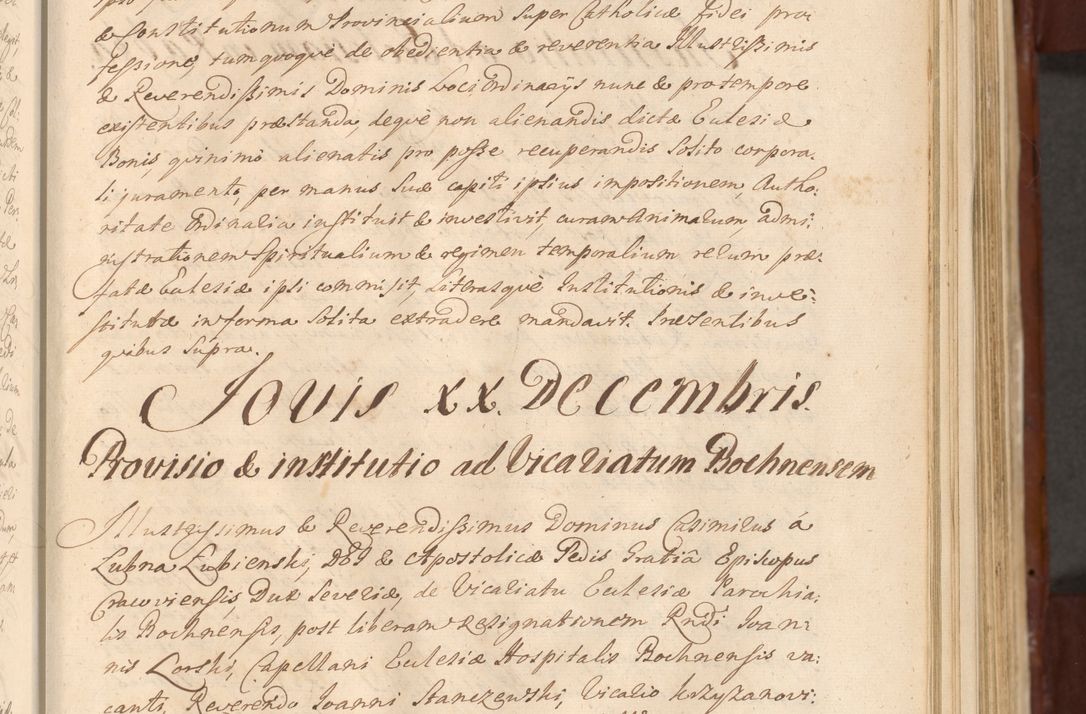 & Constitutionum Provincialium super Catholicæ fidei pro,
fessione, tum quoquè de obedientia & reverentia Illustrissimis
& Reverendissimis Dominis Loci Ordinarijs nunc & pro tempore
existentibus præstanda, dequè non alienandis dictæ Eclesiæ
Bonis, quinimò alienatis pro posse recuperandis solito corpora,
li juramento, per manus suæ capiti ipsius impositionem, Autho:
ritate Ordinalia instituit & investivit, curam Animarum, admi,
nistrationem Spiritualium & regimen temporalium rerum præ:
fatæ Eclesiæ ipsi commisit, Literasquè Institutionis & inve:
stituræ in forma solita extradere mandavit. Præsentibus
quibus supra.
Jouis XX. Decembris.
Provisio & institutio ad Vicariatum Bochnensem
Illustrissimus & Reverendissimus Dominus Casimirus á
Lubna Łubienski, DEI & Apostolicæ Sedis Gratiâ Episcopus
Cracoviensis, Dux Severiæ, de Vicariatu Eclesiæ Parochia,
lis Bochnensis, post liberam resignationem Rndi Ioan,
nis Lorski, Capellani Eclesiæ Hospitalis Bochnensis va:
canti, Reverendo Ioanni Stanczewski, Vicario krzyzanovi: